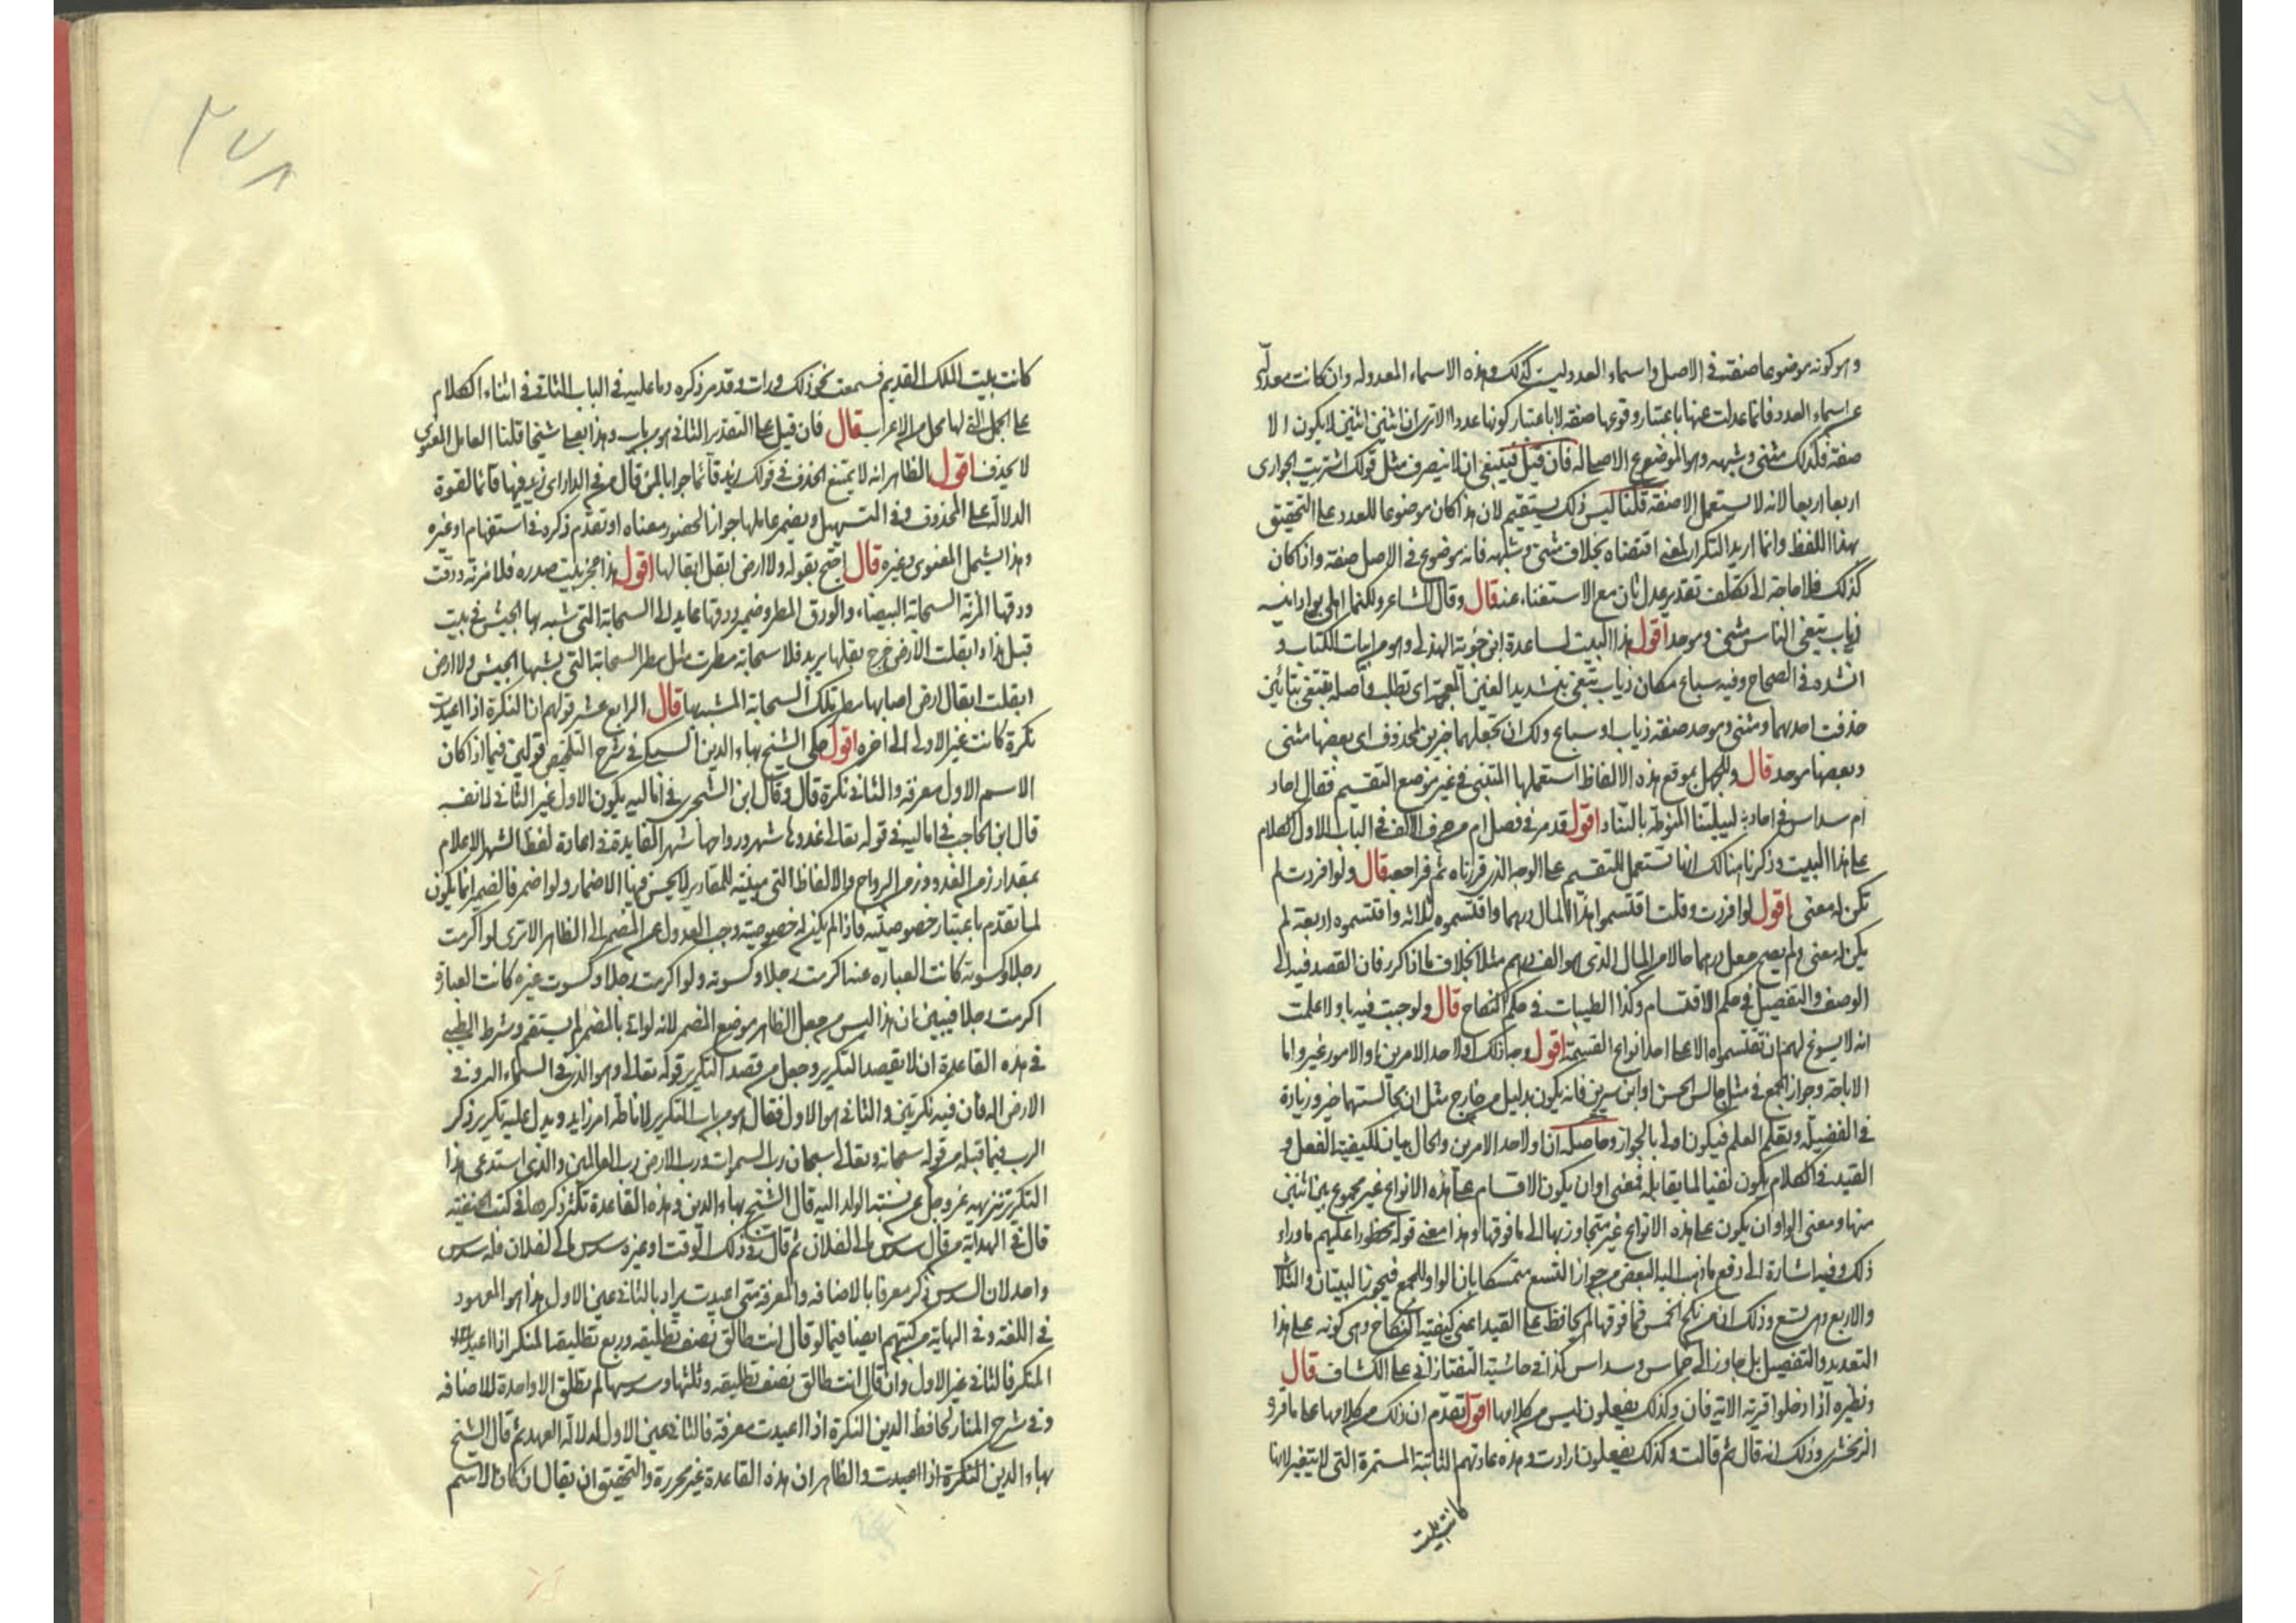 وهو كونه موضوعا صفته في الاصل واسماء العدد ليست كذلك وهذه الاسماء المعدوله وان كانت معدلة
عن اسماء العدد فانما عدلت عنها باعتبار وقوعها صفة لا باعتبار كونها عددا الا ترى ان اثنين اثنين لا يكون الا
صفة فكذلك مثنى وشبهه وهو الموضوع الاصحاله فان قيل فينبغي ان لا ينصرف مثل قولك اشتريت الجواري
اربعا اربعا لانه لا يستعمل الا صفة قلنا ليس ذلك يستقيم لان هذا كان موضوعا للعدد على التحقيق
بهذا اللفظ وانما اريد التكرار لمعنى اقتضاه بخلاف مثنى وشبهه فانه موضوع في الاصل صفة واذا كان
كذلك فلا حاجة الى تكلف تقدير عدل ثان مع الاستغناء عنه قال وقال الشاعر ولكنما اهلي بواد انيسه
ذياب تبغى الناس مثنى وموحد اقول هذا البيت لساعدة ابن جؤية الهذلي وهو من ابيات الكتاب و
انشده في الصحاح وفيه سباع مكان ذياب تبغى بتشديد الغين المعجمة اى تطلب واصله تتبغى بتائين
حذفت احديهما ومثنى وموحد صفة ذياب او سباع ولك ان تجعلهما خبرين لمحذوف اى بعضها مثنى
وبعضها موحد قال وللجهل بموقع هذه الالفاظ استعملها المتنبى في غير موضع التقسيم فقال احاد
ام سداس في احاد لييلتنا المنوطة بالتناد اقول قد مر في فصل ام من حرف الالف في الباب الاول الكلام
على هذا البيت وذكرنا هنالك انها تستعمل للتقسيم على الوجه الذي قررناه ثم فراجعه قال ولو افردت لم
تكن له معنى اقول لو افردت وقلت اقتسموا هذا المال درهما واقتسموه ثلاثه واقتسموه اربعة لم
يكن له معنى ولم يصح جعل درهما حالا من المال الذي هو الف درهم مثلا بخلاف ما اذا كرر فان القصد فيه الى
الوصف والتفصيل في حكم الاقتسام وكذا الطيبات في حكم النكاح قال ولو جيت فيها باو لاعلمت
انه لا يسوغ لهم ان تقتسموه الا على احد انواع القسيمة اقول وجه ذلك او لاحد الامرين او الامور غير واما
الاباحة وجواز الجمع في مثل جالس الحسن او ابن سيرين فانه يكون بدليل من خارج مثل ان مجالستهما خير وزيادة
في الفضيلة وبقلم العلم فيكون اولى بالجواز وحاصله ان او لاحد الامرين والحال بيان لكيفية الفعل و
القيد في الكلام يكون نفيا لما يقابله فمعنى او ان يكون الاقسام على هذه الانواع غير مجموع بين اثنين
منها ومعنى الواو ان يكون على هذه الانواع غير متجاوزيها الى ما فوقها وهذا معنى قوله محظورا عليهم ما وراء
ذلك وفيه اشارة الى دفع ما ذهب اليه البعض من جواز التسع متمسكا بان الواو للجمع فيجوز الثنتان والثلاث
والاربع وهي تسع وذلك ان من نكح الخمس فما فوقها لم يحافظ على القيد اعنى كيفية النكاح وهي كونه على هذا
التعديد والتفصيل بل جاوز الى خماس وسداس كذا في حاشية التفتازاني على الكشاف قال
ونظيره اذا دخلوا قرية الاية فان وكذلك يفعلون ليس من كلامها اقول تقدم ان ذلك من كلامها على ما قرره
الزمخشرى وذلك انه قال ثم قالت وكذلك يفعلون ارادت وهذه عادتهم الثابتة المستمرة التي لا تتغير لانها
كانت بيت
٢٧٨
كانت بيت الملك القديم فسمعت نحو ذلك ورات وقد مر ذكره وما عليه في الباب الثاني في اثناء الكلام
على الجمل التي لها محل من الاعراب قال فان قيل على التقدير الثاني هو من باب وهذا بعلي شيخا قلنا العامل المعنوى
لا يحذف اقول الظاهر انه لا يمتنع الحذف في قولك زيد قائما جوابا لمن قال من في الدار اى زيد فيها قائما لقوة
الدلالة على المحذوف وفي التسهيل ويضمر عاملها جوازا لحضور معناه او تقدم ذكره في استفهام او غيره
وهذا يشمل المعنوى وغيره قال احتج بقوله ولا ارض ابقل ابقالها اقول هذا عجز بيت صدره فلا مزنة ودقت
ودقها المزنة السحابة البيضاء والودق المطر وضمير ودقها عايد الى السحابة التي شبه بها الجيش في بيت
قبل هذا وابقلت الارض خرج بقلها يريد فلا سحابة مطرت مثل مطر السحابة التي يشبهها الجيش ولا ارض
ابقلت ابقال ارض اصابها مطر تلك السحابة المشبهها قال الرابع عشر قولهم ان النكرة اذا اعيدت
نكرة كانت غير الاولى الى اخره اقول حكى الشيخ بهاء الدين السبكى في شرح التلخيص قولين فيما اذا كان
الاسم الاول معرفة والثاني نكرة قال وقال ابن الشجرى في اماليه يكون الاول غير الثاني لما نصه
قال ابن الحاجب في اماليه في قوله تعالى غدوها شهر ورواحها شهر الفايدة في اعادة لفظ الشهر الاعلام
بمقدار زمن الغدو وزمن الرواح والالفاظ التي مبينة للمقادير لا يحسن فيها الاضمار ولو اضمر فالضمير انما يكون
لما تقدم باعتبار خصوصيته فاذا لم يكن له خصوصية وجب العدول عن المضمر الى الظاهر الا ترى لو اكرمت
رجلا وكسوته كانت العباره عنه اكرمت رجلا وكسوته ولو اكرمت رجلا وكسوت غيره كانت العبارة
اكرمت رجلا فيبين ان هذا ليس من جعل الظاهر موضع المضمر لانه لو اتى بالمضمر لم يستقم وشرط الطيبى
في هذه القاعدة ان لا يقصد التكرير وجعل من قصد التكرير قوله تعالى وهو الذي في السماء اله وفي
الارض اله فان فيه نكرتين والثاني هو الاول فقال هو من باب التكرير لاناطة امر زايد ويدل عليه تكرير ذكر
الرب فيما قبله من قوله سبحانه وتعالى سبحان رب السموات ورب الارض رب العالمين والذي استدعى هذا
التكرير تنزيهه عز وجل عن نسبة الولد اليه قال الشيخ بهاء الدين وهذه القاعدة تكثر ذكرها في كتب الحنفية
قال في الهداية من قال سدس مالى لفلان ثم قال في ذلك الوقت او غيره سدس مالى لفلان فله سدس
واحد لان السدس ذكر معرفا بالاضافه والمعرفة متى اعيدت يراد بالثاني عين الاول هذا هو المعهود
في اللغة وفي الهاية من كتبهم ايضا فيما لو قال انت طالق نصف تطليقه وربع تطليقة المنكر اذا اعيد
المنكر فالثاني غير الاول وان قال انت طالق نصف تطليقه وثلثها وسدسها لم تطلق الا واحدة للاضافه
وفي شرح المنار لحافظ الدين النكرة اذا اعيدت معرفة فالثاني عين الاول لدلالة العهد ثم قال الشيخ
بهاء الدين النكرة اذا اعيدت والظاهر ان هذه القاعدة غير محررة والتحقيق ان يقال ان كان الاسم